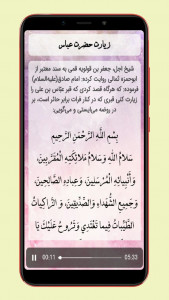 زیارت حضرت عباس
شیخ اجل، جعفر بن قولویه قمی به سند معتبر از
ابوحمزه ثمالی روایت کرده: امام صادق(علیه‌السلام)
فرموده: که هرگاه قصد کردی که قبر عبّاس بن علی را
زیارت کنی قبری که در کنار فرات برابر حائر است، بر
در روضه می‌ایستی و می‌گویی:
بِسْمِ اللَّهِ الرَّحْمَنِ الرَّحِيمِ
سَلامُ اللَّهِ وَسَلامُ مَلائِكَتِهِ الْمُقَرَّبِينَ،
وَأَنْبِيَائِهِ الْمُرْسَلِينَ، وَعِبادِهِ الصَّالِحِينَ،
وَجَمِيعِ الشُّهَداءِ وَالصِّدِّيقِينَ، وَ الزَّاكِيَاتُ
الطَّيِّبَاتُ فِيما تَغْتَدِي وَتَرُوحُ عَلَيْكَ يَا
00:11 05:33